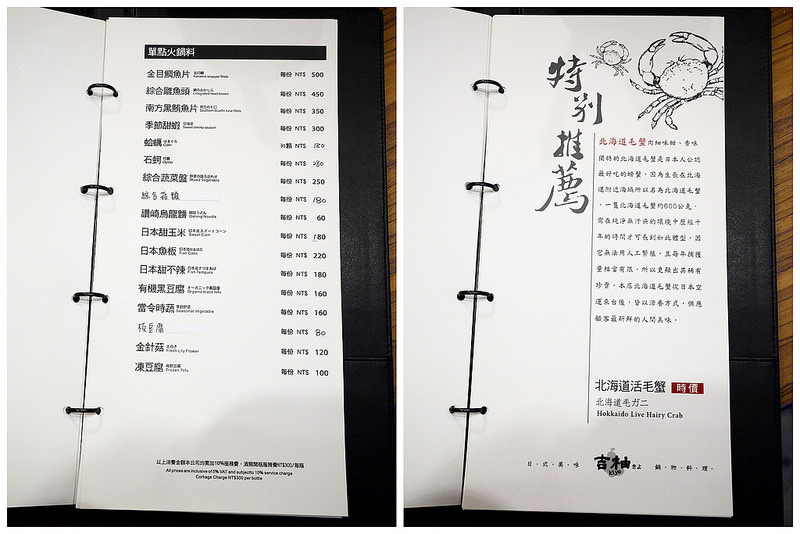 單點火鍋料
金目鯛魚片 每份 NT$ 500
綜合雕魚頭 每份 NT$ 450
南方黑鮪魚片 每份 NT$ 350
季節甜蝦 每份 NT$ 300
蛤蠣 NT$ 180
石蚵 每份 NT$ 280
綜合蔬菜盤 Mixed Vegetable 每份 NT$ 250
綜合菇類 每份 NT$ 180
讚崎烏龍麵 Oolong Noodle 每份 NT$ 60
日本甜玉米 日本産スイートコーン Sweet Corn 每份 NT$ 180
日本魚板 Fish Cake 每份 NT$ 220
日本甜不辣 Fish Tempura 每份 NT$ 180
有機黑豆腐 オーガニック黒豆腐 Organic black tofu 每份 NT$ 160
當令時蔬 季節野菜 Seasonal Vegetable 每份 NT$ 160
板豆腐 每份 NT$ 80
金針菇 えのき Fresh Lily Flower 每份 NT$ 120
凍豆腐 Frozen Tofu 每份 NT$ 100
以上消費金額本公司均需加10%服務費，酒類開瓶服務費NT$300/每瓶
All prices are inclusive of 5% VAT and subject to 10% service charge
Corkage Charge NT$300 per bottle
特別推薦
北海道毛蟹肉細味甜、香味
獨特的北海道毛蟹是日本人公認
最好吃的螃蟹，因為生長在北海
道附近海域所以名為北海道毛蟹
，一隻北海道毛蟹約600公克，
需在純淨無汙染的環境中歷經十
年的時間才可長到如此體型，因
它無法用人工繁殖，且每年捕獲
量相當有限，所以更顯出其稀有
珍貴。本店北海道毛蟹從日本空
運來台後，皆以活養方式，供應
顧客最新鮮的人間美味。
北海道活毛蟹 時價
北海道毛ガニ
Hokkaido Live Hairy Crab
日・式・美・味 吉柚 きよ kiyo 鍋・物・料・理・